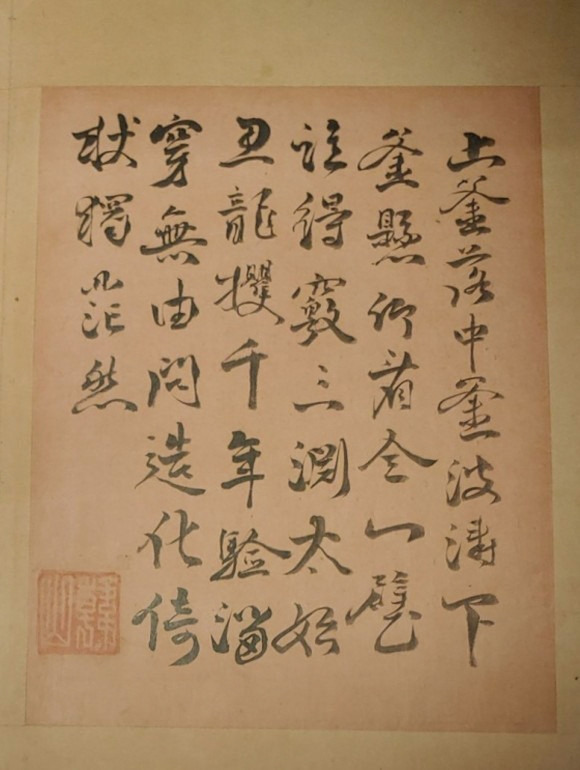 上釜落中釜波濤下
釜懸仰看全一壁
誰得竅三淵太始
思龍攫千年驗溜
穿無由問造化倚
杖獨茫然